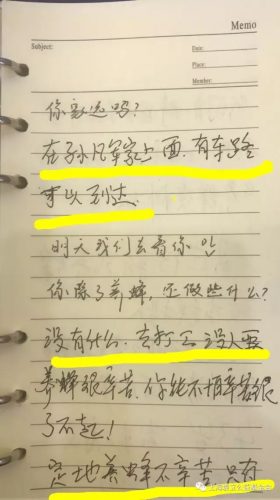 Memo
Subject:
Date:
Place:
Member:
你家远吗？
在孙凡军家上面，有车路
可以到达.
明天我们去看你
你除了养蜂，还做些什么？
没有什么．去打工没人要
养蜂很辛苦，你能不怕辛苦很
了不起！
定地养蜂不辛苦只有